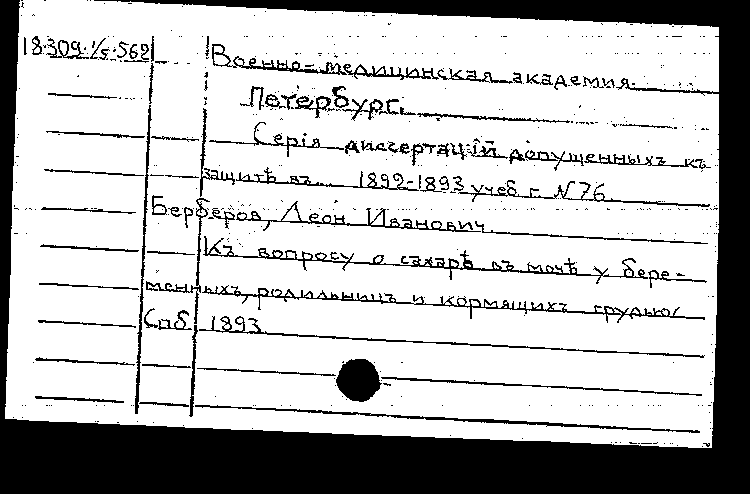 18.309.1/5.562
Военно-медицинская академия.
Петербург.
Серія диссертацій допущенныхъ къ
защитѣ въ 1892-1893 учеб г. N 76.
Берберов, Леон Иванович.
Къ вопросу о сахарѣ въ мочѣ у бере-
менныхъ, родильницъ и кормящихъ грудью
Спб 1893